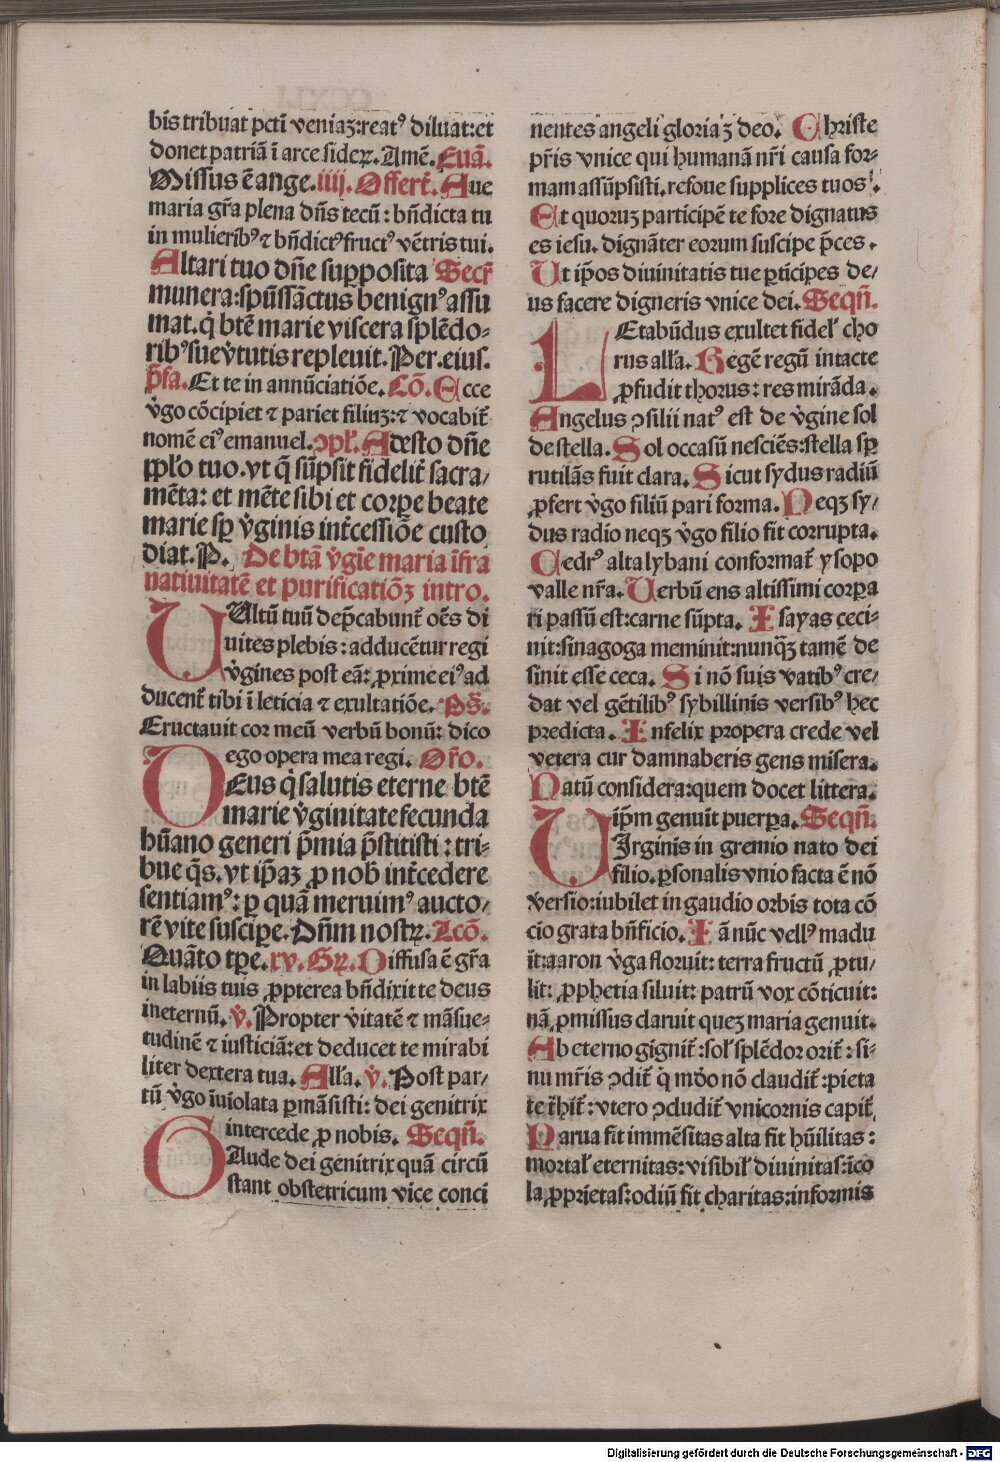 bis tribuat pctī veniaʒ:reatꝰ diluat:et
donet patriā ī arce siderꝝ. Amē. Euā.
Missus ē ange. iiij. Offert̄. Aue
maria gr̄a plena dn̄s tecū: bn̄dicta tu
in mulieribꝰ ⁊ bn̄dictꝰ fructꝰ vētris tui.
Altari tuo dn̄e supposita Secr̄
munera:spūssāctus benignꝰ assu
mat. q̇ btē marie viscera splēdo⸗
ribꝰ sue v̇tutis repleuit. Per. eius.
p̄fa. Et te in annūciatiōe. Cō. Ecce
v̇go cōcipiet ⁊ pariet filiuʒ:⁊ vocabit̄
nomē eiꝰ emanuel. ↄpl̄. Adesto dn̄e
ppl̄o tuo. vt q̄ sūpsit fidelit̄ sacra/
mēta: et mēte sibi et corꝑe beate
marie sꝑ v̇ginis int̄cessiōe custo
diat. P. De btā v̇gīe maria īfra
natiuitatē et purificatiōʒ intro.
VUltū tuū dep̄cabunt̄ oēs di
uites plebis : adducētur regi
v̇gines post eā: ꝓxime eiꝰ ad
ducent̄ tibi ī leticia ⁊ exultatiōe. Ps̄.
Eructauit cor meū verbū bonū: dico
ego opera mea regi. Or̄o.
DEus q̇ salutis eterne btē
marie v̇ginitate fecunda
hūano generi p̄mia p̄stitisti : tri⸗
bue q̄s. vt ip̄aʒ ꝓ nob̄ int̄cedere
sentiamꝰ: ꝑ quā meruimꝰ aucto/
rē vite suscipe. Dn̄m nostꝝ. Lcō.
Quāto tꝑe. xv. Gꝝ. Diffusa ē gr̄a
in labiis tuis ꝓpterea bn̄dixit te deus
ineternū. v̇. Propter v̇itatē ⁊ māsue⸗
tudinē ⁊ iusticiā:et deducet te mirabi
liter dextera tua. All̄a. v̇. Post par/
tū v̇go īuiolata ꝑmāsisti: dei genitrix
intercede ꝓ nobis. Seqn̄.
GAude dei genitrix quā circū
stant obstetricum vice conci
nentes angeli gloriaʒ deo. Christe
pr̄is vnice qui humanā nr̄i causa for⸗
mam assūpsisti. refoue supplices tuos.
Et quoruʒ participē te fore dignatus
es iesu. dignāter eorum suscipe p̄ces.
Ut ip̄os diuinitatis tue ꝑticipes de/
us facere digneris vnice dei. Seqn̄.
LEtabūdus exultet fidel̄ cho
rus all̄a. Regē regū intacte
ꝓfudit thorus: res mirāda.
Angelus ↄsilii natꝰ est de v̇gine sol
de stella. Sol occasū nesciēs:stella sꝑ
rutilās fuit clara. Sicut sydus radiū
ꝓfert v̇go filiū pari forma. Neqʒ sy/
dus radio neqʒ v̇go filio fit corrupta.
Cedrꝰ alta lybani conformat̄ ysopo
valle nr̄a. Uerbū ens altissimi corꝑa
ri passū est:carne sūpta. Isayas ceci⸗
nit:sinagoga meminit:nunq̄ʒ tamē de
sinit esse ceca. Si nō suis vatibꝰ cre/
dat vel gētilibꝰ sybillinis versibꝰ hec
predicta. Infelix propera crede vel
vetera cur damnaberis gens misera.
Natū considera:quem docet littera.
ip̄m genuit puerꝑa. Seqn̄.
VIrginis in gremio nato dei
filio. ꝑsonalis vnio facta ē nō
versio:iubilet in gaudio orbis tota cō
cio grata bn̄ficio. Iā nūc vellꝰ madu
it:aaron v̇ga floruit: terra fructū ꝓtu/
lit: ꝓphetia siluit: patrū vox cōticuit:
nā ꝓmissus claruit queʒ maria genuit.
Ab eterno gignit̄ :sol̄ splēdor orit̄ : si⸗
nu mr̄is ↄdit̄ q̇ mōo nō claudit̄ :pieta
te t̄hit̄ : vtero ↄdudit̄ vnicornis capit̄.
Parua fit immēsitas alta fit hūilitas :
mortal̄ eternitas: visibil̄ diuinitas:īco
la ꝓprietas:odiū fit charitas:informis
Digitalisierung gefördert durch die Deutsche Forschungsgemeinschaft - DFG